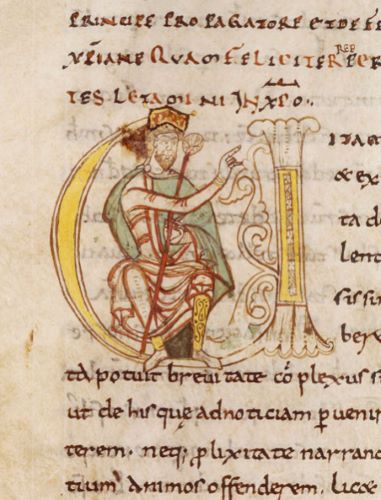 PRINCIPE PROPAGATORE ET DEFE
XPIANE QUAM FELICITER REPER
TES LETAMINI IN XPO.
ITA
& ex
ta d
lent
sissi
berx
ta potuit breuitate cō plexus s
ut de hisque adnoticiam p uenir
terem. neq; plixitate narran
tium animos offenderem, lic&